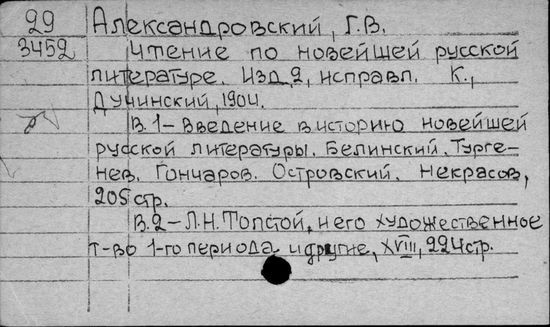 29 Александровский, Г.В.
3452 Чтение по новейшей русской
литературе. Изд. 2, исправл. К.,
Дучинский, 1904.
В.1 – Введение в историю новейшей
русской литературы. Белинский. Турге-
нев. Гончаров. Островский. Некрасов,
205 стр.
В.2 – Л.Н. Толстой, и его художественное
т-во 1-го периода и другие, XVIII, 224 стр.